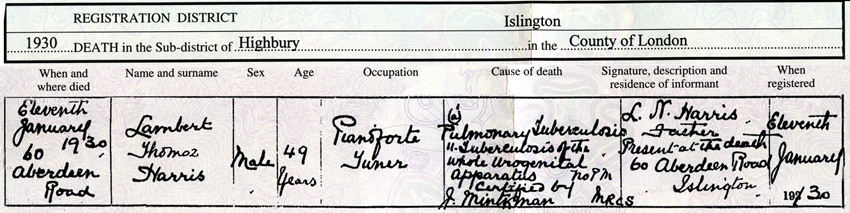 REGISTRATION DISTRICT Islington
1930 DEATH in the Sub-district of Highbury in the County of London
When and where died
Name and surname
Sex
Age
Occupation
Cause of death
Signature, description and residence of informant
When registered
Eleventh
January
1930
60
Aberdeen
Road
Lambert
Thomas
Harris
Male
49
Years
Pianoforte
Tuner
(a)
Pulmonary Tuberculosis
11. Tuberculosis of the
whole urogenital
apparatus no P M
Certified by
J. MRCS
L. N. Harris
Father
Present at the death
60 Aberdeen Road
Islington
Eleventh
January
1930